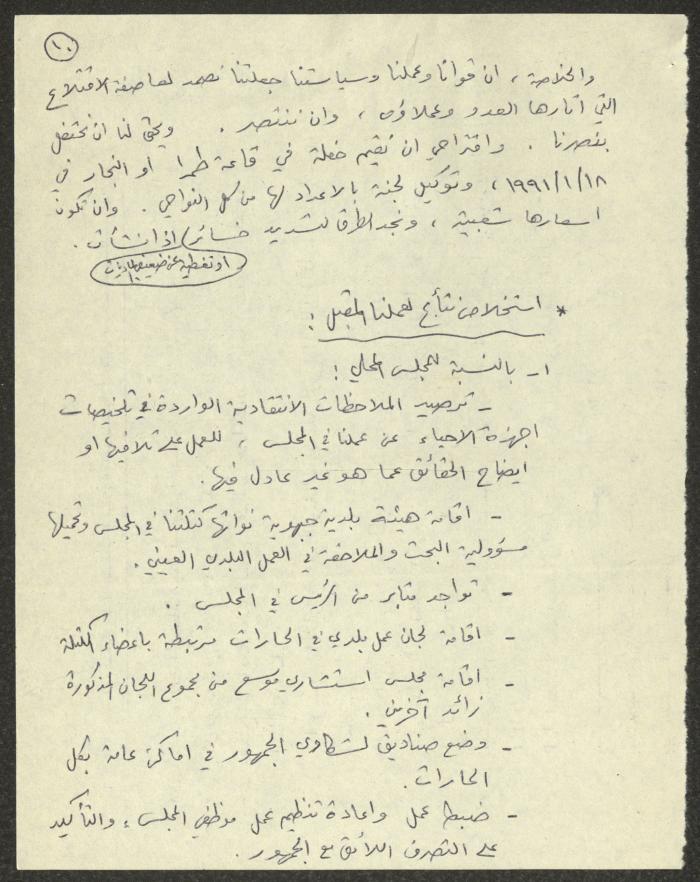 ١٠
والخلاصة، ان قوانا وعملنا وسياستنا جعلتنا نصمد لعاصفة الاقتلاع
التي اثارها العدو وعملاؤه، وان ننتصر. ويحق لنا ان نحتفل
بنصرنا. واقتراحي ان نقيم حفلة في قاعة طمرا او النجار في
١٩٩١/١/١٨، وتوكيل لجنة بالاعداد لها من كل النواحي. وان تكون
اسعارها شعبية، ونجد الطرق لتسديد خسائر اذا نشأت.
او تغطية عن ضعيفي الماديات
* استخلاص نتائج لعملنا المقبل:
١- بالنسبة للمجلس المحلي:
- ترصيد الملاحظات الانتقادية الواردة في تلخيصات
اجهزة الاحياء عن عملنا في المجلس، للعمل على تلافيها او
ايضاح الحقائق عما هو غير عادل فيها.
- اقامة هيئة بلدية جبهوية نواتها كتلتنا في المجلس وتحميلها
مسؤولية البحث والملاحقة في العمل البلدي العيني.
- تواجد مثابر من الرئيس في المجلس.
- اقامة لجان عمل بلدي في الحارات مرتبطة باعضاء الكتلة
- اقامة مجلس استشاري موسع من مجموع اللجان المذكورة
زائد آخرين.
- وضع صناديق لشكاوي الجمهور في اماكن عامة بكل
الحارات.
- ضبط عمل واعادة تنظيم عمل موظفي المجلس، والتأكيد
على التصرف اللائق مع الجمهور.